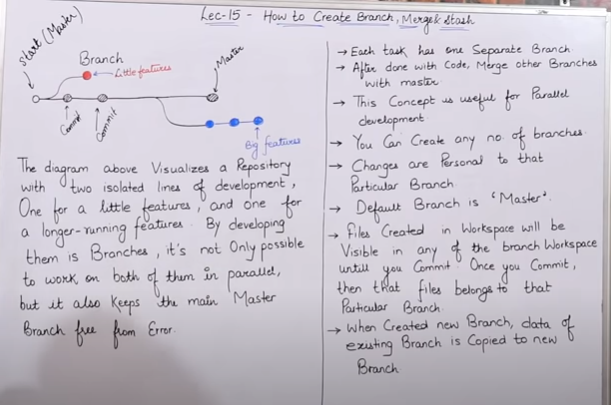 Lec-15 - How to Create Branch, Merge & Stash
Start (Master)
Branch
Little features
Master
Commit
Commit
Big features
The diagram above Visualizes a Repository
with two isolated lines of development,
One for a little features, and one for
a longer-running features. By developing
them is Branches, it's not Only possible
to work on both of them in parallel,
but it also Keeps the main Master
Branch free from Error.
→ Each task has one Separate Branch
→ After done with Code, Merge other Branches
with master.
→ This Concept is useful for Parallel
development.
→ You Can Create any no of branches.
→ Changes are Personal to that
Particular Branch.
→ Default Branch is 'Master'.
→ Files Created in Workspace will be
Visible in any of the branch Workspace
untill you Commit. Once you Commit,
then that files belongs to that
Particular Branch.
→ When Created new Branch, data of
existing Branch is Copied to new
Branch